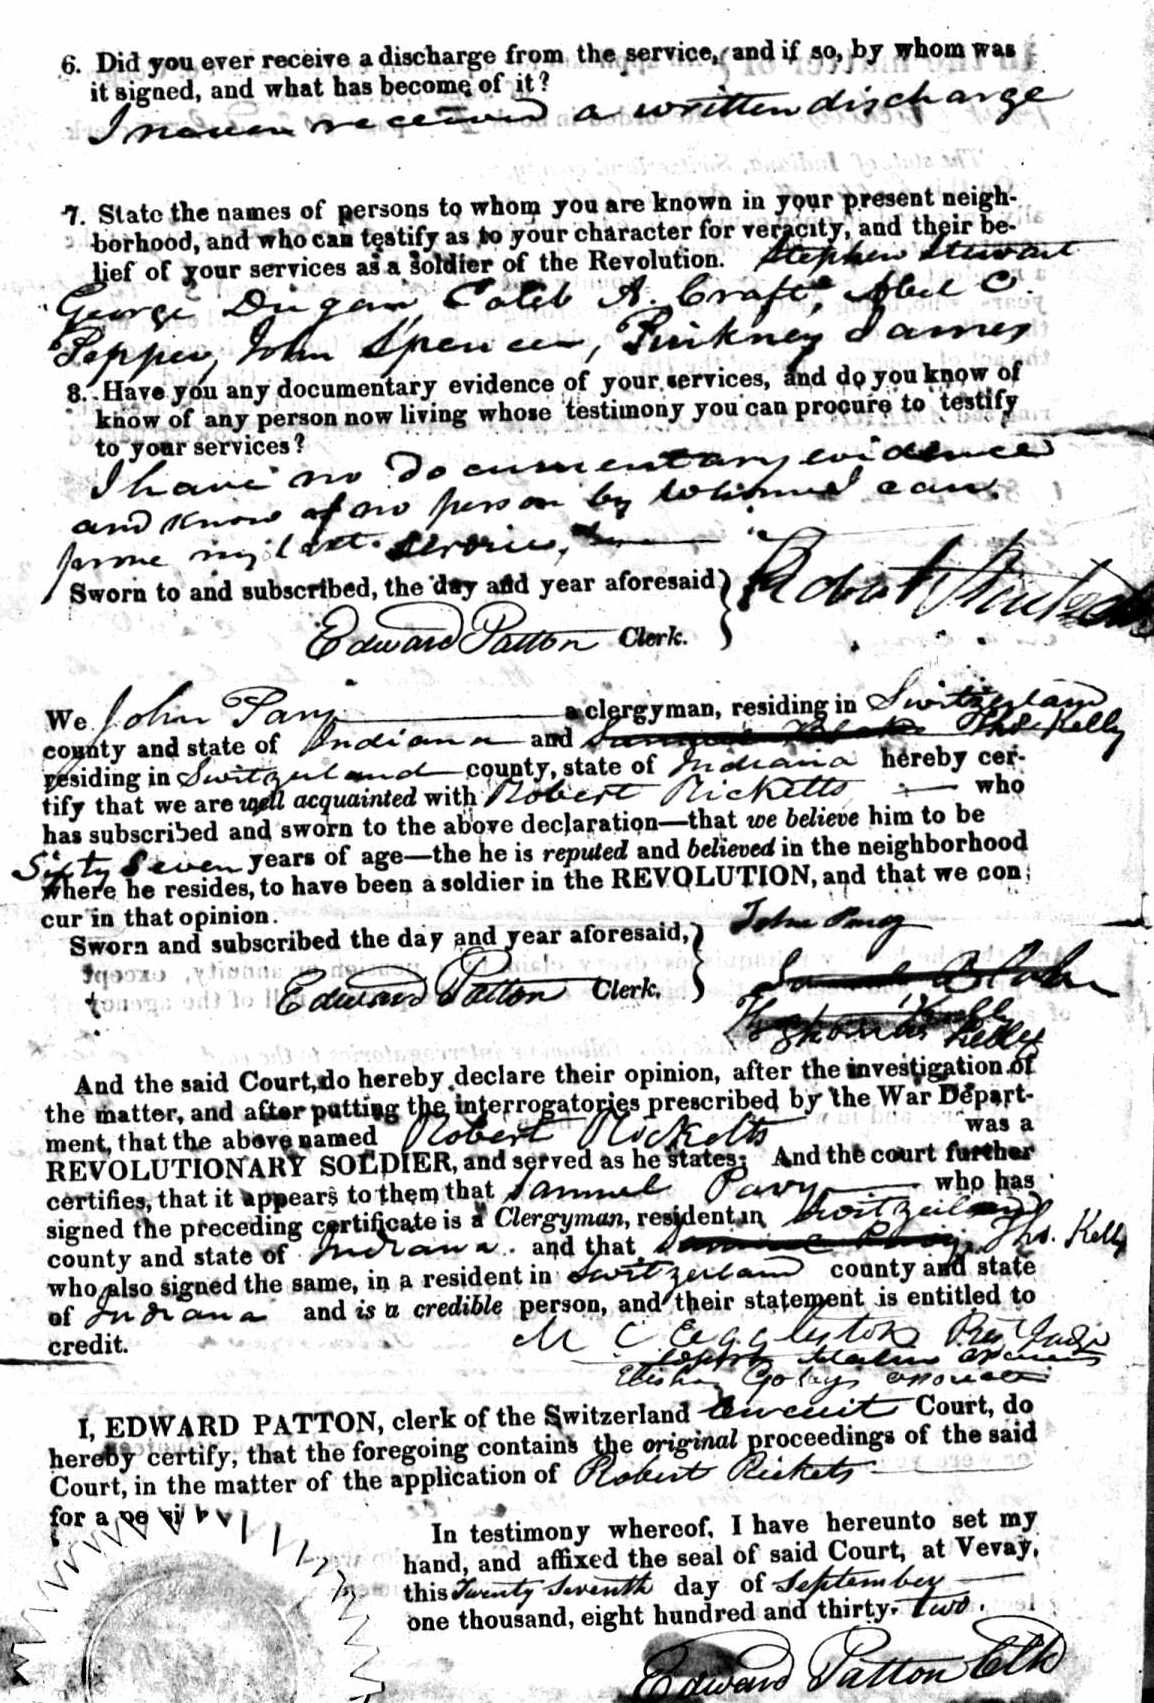 6. Did you ever receive a discharge from the service, and if so, by whom was
it signed, and what has become of it?
I never received a written discharge
7. State the names of persons to whom you are known in your present neigh-
borhood, and who can testify as to your character for veracity, and their be-
lief of your services as a soldier of the Revolution. Stephen Stewart
George Dugan, Caleb A. Craft, Abel C.
Pepper, John Spencer, Pinkney James
8. Have you any documentary evidence of your services, and do you know of
know of any person now living whose testimony you can procure to testify
to your services?
I have no documentary evidence
and know of no person by whom I can
prove my service,
Sworn to and subscribed, the day and year aforesaid
Robert Ricketts
Edward Patton Clerk.
We John Pavy a clergyman, residing in Switzerland
county and state of Indiana and Thos Kelly
residing in Switzerland county, state of Indiana hereby cer-
tify that we are well acquainted with Robert Ricketts who
has subscribed and sworn to the above declaration—that we believe him to be
Sixty Seven years of age—the he is reputed and believed in the neighborhood
where he resides, to have been a soldier in the REVOLUTION, and that we con-
cur in that opinion.
John Pavy
Sworn and subscribed the day and year aforesaid,
Edward Patton Clerk,
Thomas Kelly
And the said Court, do hereby declare their opinion, after the investigation of
the matter, and after putting the interrogatories prescribed by the War Depart-
ment, that the above named Robert Ricketts was a
REVOLUTIONARY SOLDIER, and served as he states; And the court further
certifies, that it appears to them that Samuel Pavy who has
signed the preceding certificate is a Clergyman, resident in Switzerland
county and state of Indiana and that Thos. Kelly
who also signed the same, in a resident in Switzerland county and state
of Indiana and is a credible person, and their statement is entitled to
credit.
M C Eggleston Pres Judge
Elisha Golay associate
I, EDWARD PATTON, clerk of the Switzerland Circuit Court, do
hereby certify, that the foregoing contains the original proceedings of the said
Court, in the matter of the application of Robert Rickets
for a
In testimony whereof, I have hereunto set my
hand, and affixed the seal of said Court, at Vevay,
this Twenty Seventh day of September
one thousand, eight hundred and thirty-two.
Edward Patton Clk